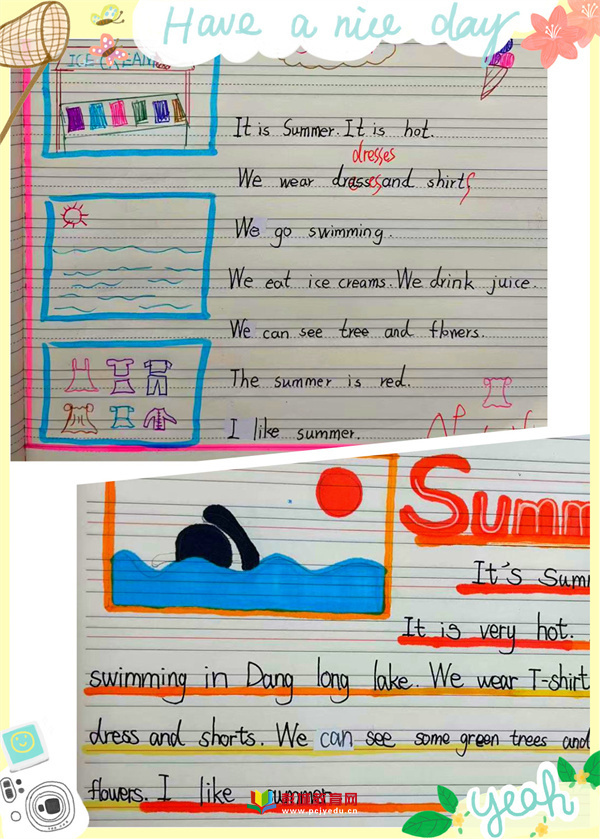 Have a nice day
ICE CREAM
It is Summer. It is hot.
dresses
We wear dresses and shirts
We go swimming.
We eat ice creams. We drink juice.
We can see tree and flowers.
The summer is red.
I like summer.
Summ
It's Summ
It is very hot.
swimming in Dang long lake. We wear T-shirt
dress and shorts. We can see some green trees and
flowers. I like summer
教育网
www.pcjyedu.cn
yeah